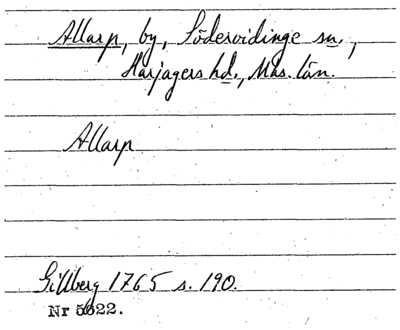 Allarp, by, Södervidinge sn.,
Harjagers hd., Mas. län.
Allarp
Gillberg 1765 s. 190.
Nr 5622.